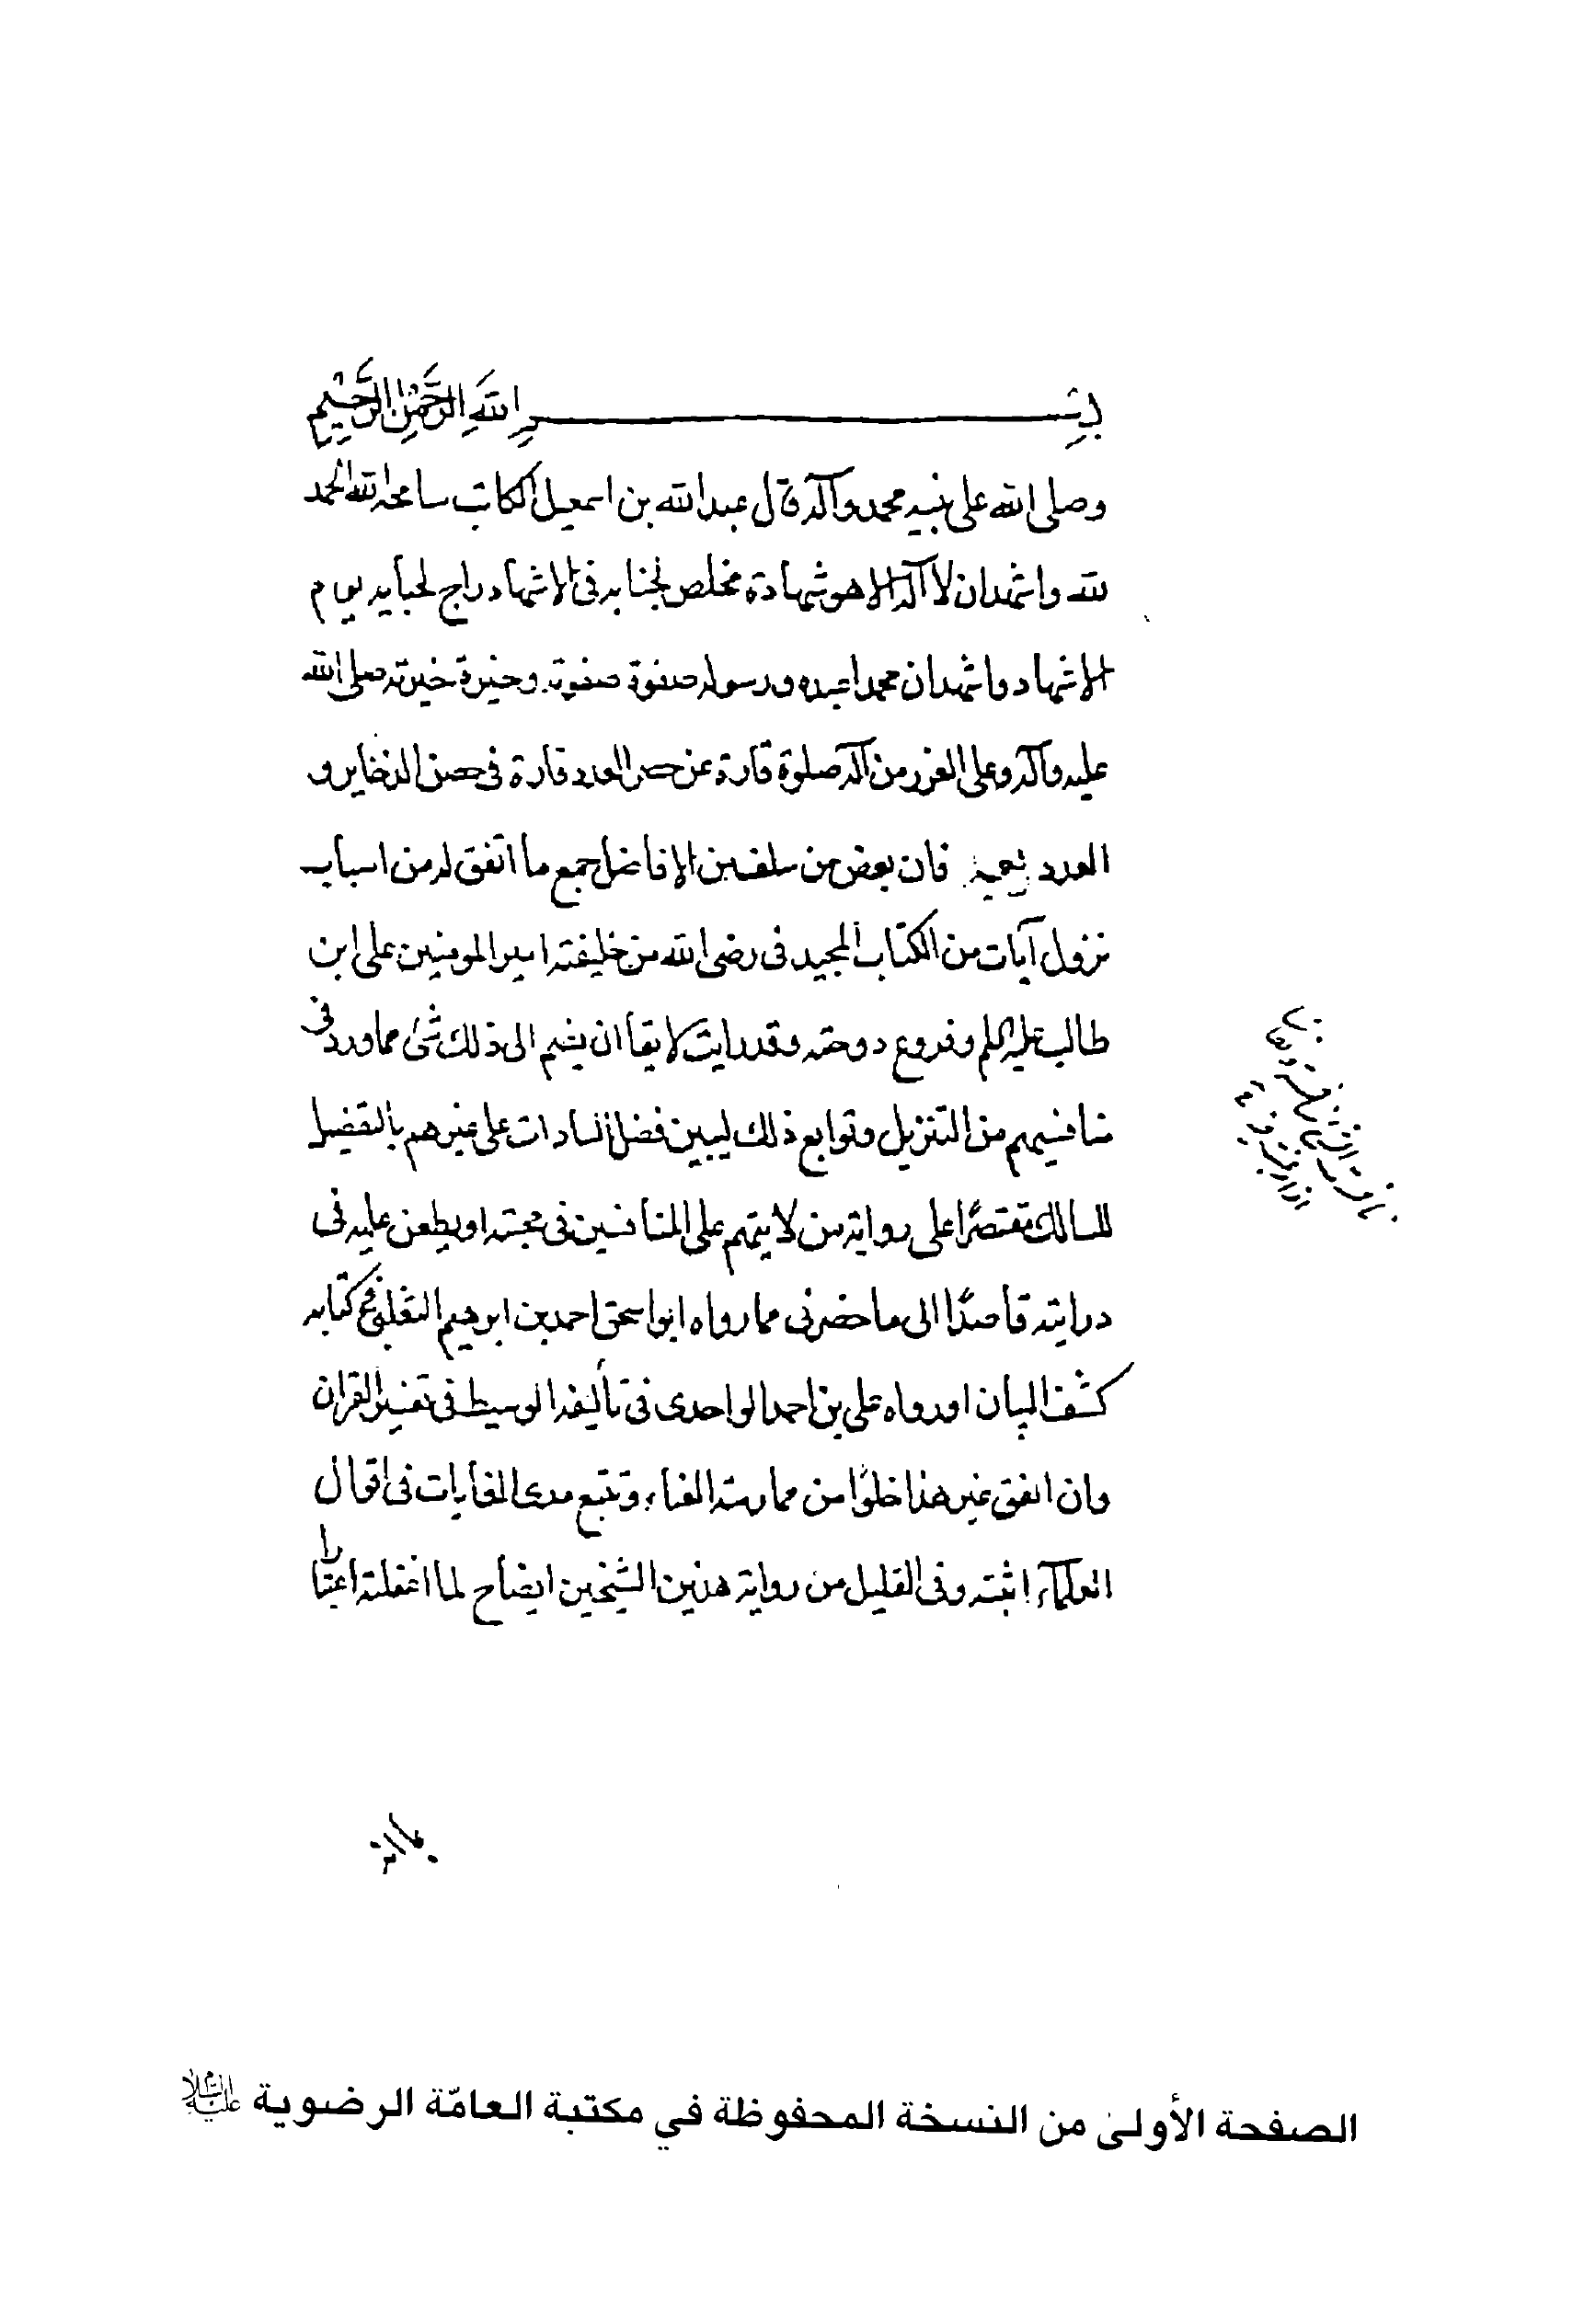 بسم الله الرحمن الرحيم
وصلى الله على نبيه محمد وآله قال عبد الله بن اسمعيل الكاتب سامحه الله الحمد
لله واشهد ان لا آله الا هو شهادة مخلص لجنابه في الاشهاد راج لحبايه يوم
الاشهاد واشهد ان محمدا عبده ورسوله صفوة صفوته وخيرة خيرته صلى الله
عليه وآله وعلى الغرر من آله صلوة قارة عن حصر العدد قارة في حصن الذخاير و
العدد فان بعض من سلف من الافاضل جمع ما اتفق له من اسباب
نزول آيات من الكتاب المجيد في رضى الله من خليفته امير المومنين على ابن
طالب عليه السلم وفروع دوحته وقد رايت لايقا ان يضم الى ذلك شئ مما ورد في
منافسيهم من التنزيل وتوابع ذلك ليبين فضل السادات على غيرهم بالتفضيل
للسالك مقتصرًا على رواية من لا يتهم على المنافسين في محبته او يطعن عليه فى
درايته قاصدًا الى ما حضرنى مما رواه ابو اسحق احمد بن ابرهيم الثعلبى في كتابه
كشف البيان او رواه على بن احمد الواحدى فى تأليفه الوسيط فى تفسير القران
وان اتفق غير هذا خلوًا من ممارسة العناء وتتبع مدى الغايات فى اقوال
العلماء اثبته وفى القليل من رواية هذين الشيخين ايضاح لما اغفلته اعتبارا
الصفحة الأولىٰ من النسخة المحفوظة في مكتبة العامّة الرضوية عليه السلام